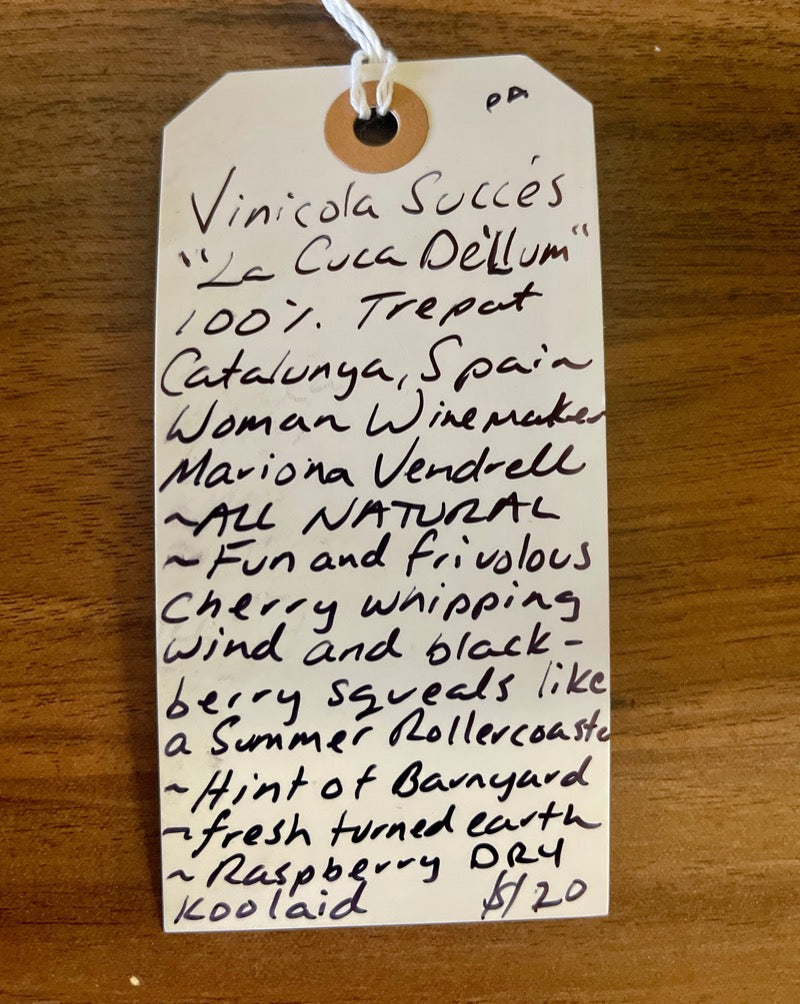 PA
Vinicola Succés
"La Cuca De'Llum"
100% Trepat
Catalunya, Spain
Woman Winemaker
Mariona Vendrell
~ALL NATURAL
~Fun and frivolous
cherry whipping
wind and black-
berry squeals like
a Summer Rollercoaste
~Hint of Barnyard
~fresh turned earth
~Raspberry DRY
Koolaid $120